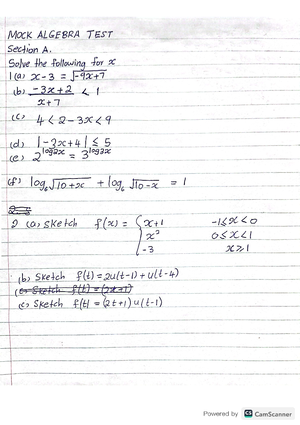 MOCK ALGEBRA TEST
Section A.
Solve the following for x
1(a) x-3 = √-9x+7
(b) -3x+2 < 1
x+7
(c) 4 < 2-3x < 9
(d) |-2x+4| ≤ 5
(e) 2^log2x = 3^log3x
(f) log₆√10+x + log₆√10-x = 1
2 (a) Sketch f(x) = { x+1 -1≤x<0
x² 0≤x<1
-3 x≥1
(b) Sketch f(t) = 2u(t-1)+u(t-4)
(c) Sketch f(t) = (2t+1)u(t-1)
Powered by CS CamScanner